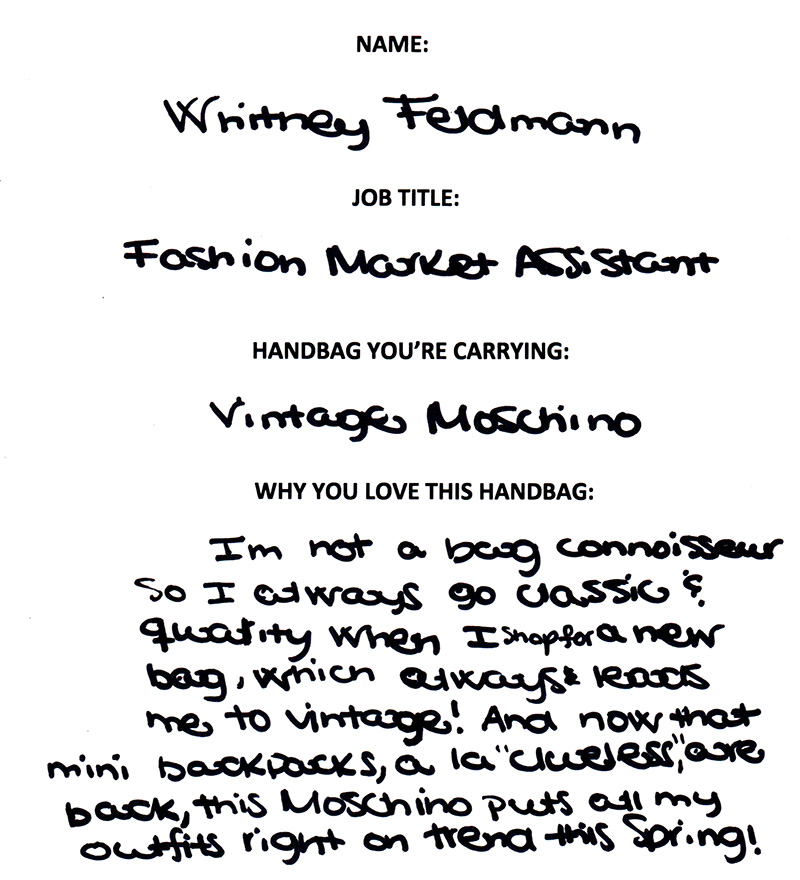 NAME:
Whitney Feldmann
JOB TITLE:
Fashion Market Assistant
HANDBAG YOU'RE CARRYING:
Vintage Moschino
WHY YOU LOVE THIS HANDBAG:
Im not a bag connoisseur
so I always go classic &
quality when I shop for a new
bag, which always leads
me to vintage! And now that
mini backpacks, a la "clueless", are
back, this Moschino puts all my
outfits right on trend this Spring!